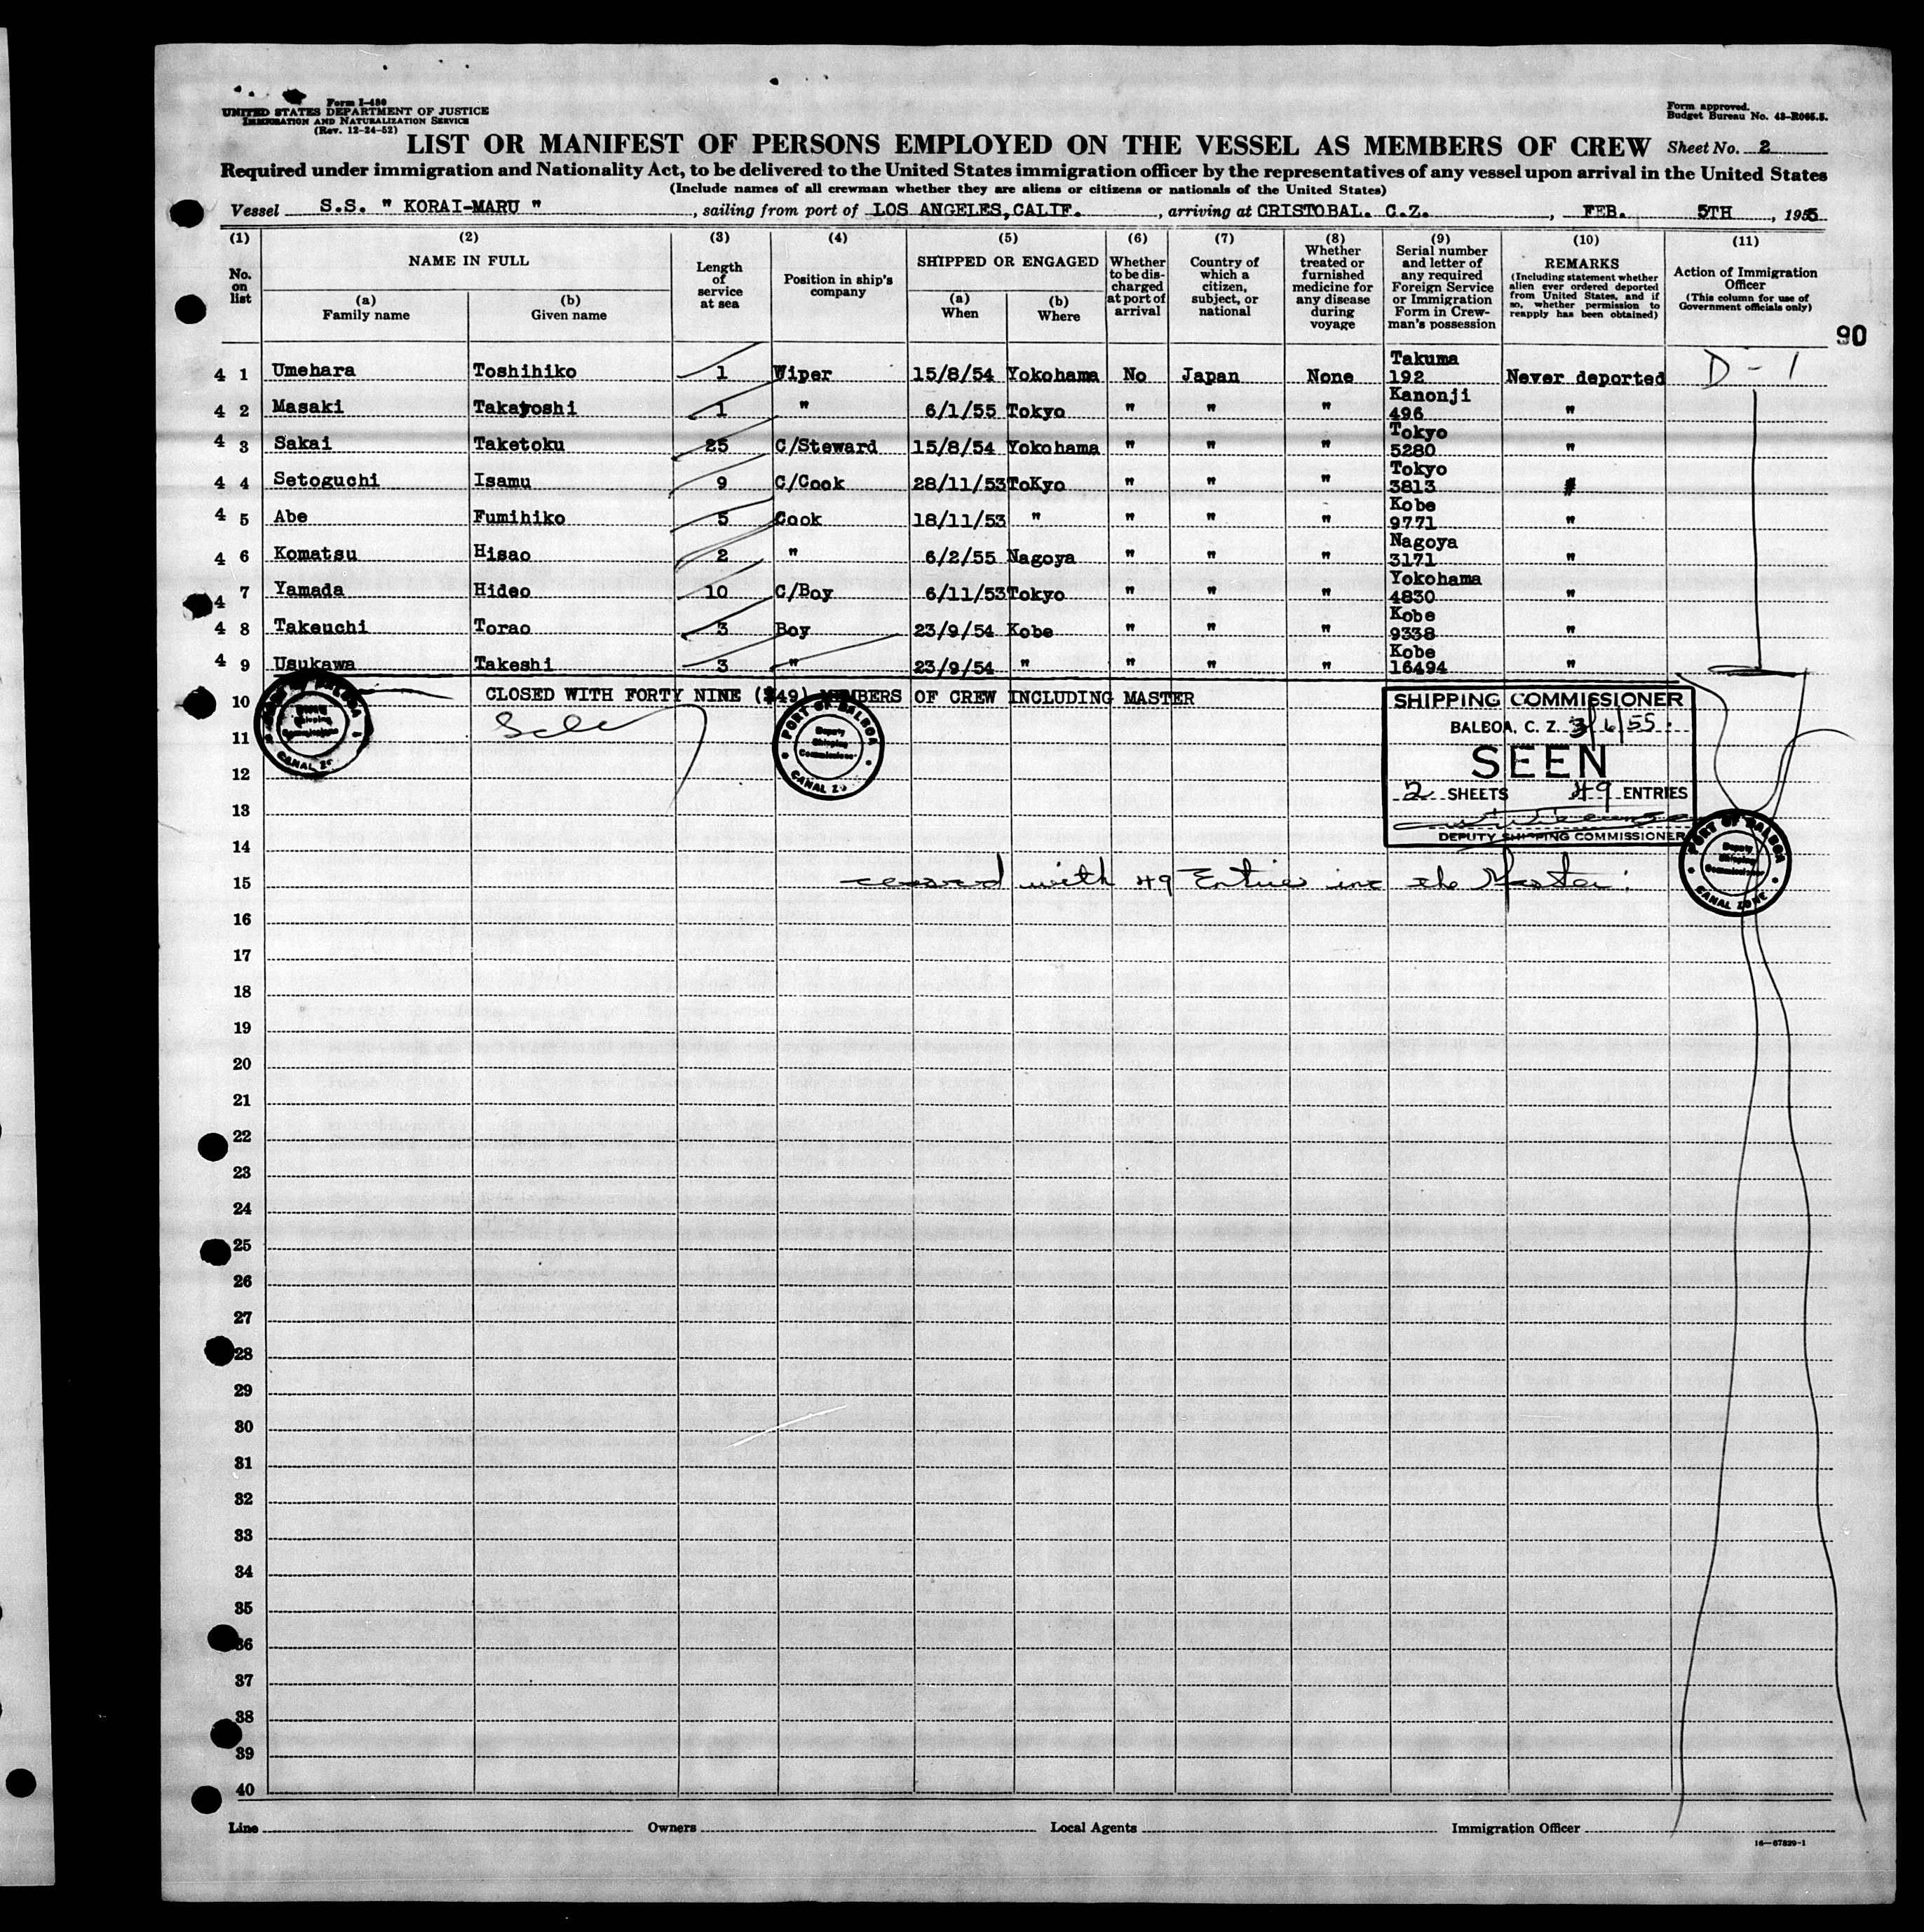 Form I-480
UNITED STATES DEPARTMENT OF JUSTICE
IMMIGRATION AND NATURALIZATION SERVICE
(Rev. 12-24-52)
Form approved.
Budget Bureau No. 43-R065.5.
LIST OR MANIFEST OF PERSONS EMPLOYED ON THE VESSEL AS MEMBERS OF CREW Sheet No. 2
Required under immigration and Nationality Act, to be delivered to the United States immigration officer by the representatives of any vessel upon arrival in the United States
(Include names of all crewman whether they are aliens or citizens or nationals of the United States)
Vessel S.S. " KORAI-MARU ", sailing from port of LOS ANGELES,CALIF., arriving at CRISTOBAL. C.Z., FEB. 5TH, 1955
(1) No. on list
(2) NAME IN FULL (a) Family name (b) Given name
(3) Length of service at sea
(4) Position in ship's company
(5) SHIPPED OR ENGAGED (a) When (b) Where
(6) Whether to be discharged at port of arrival
(7) Country of which a citizen, subject, or national
(8) Whether treated or furnished medicine for any disease during voyage
(9) Serial number and letter of any required Foreign Service or Immigration Form in Crewman's possession
(10) REMARKS (Including statement whether alien ever ordered deported from United States, and if so, whether permission to reapply has been obtained)
(11) Action of Immigration Officer (This column for use of Government officials only)
90
4 1 Umehara Toshihiko 1 Wiper 15/8/54 Yokohama No Japan None Takuma 192 Never deported D - 1
4 2 Masaki Takayoshi 1 " 6/1/55 Tokyo " " " Kanonji 496 "
4 3 Sakai Taketoku 25 C/Steward 15/8/54 Yokohama " " " Tokyo 5280 "
4 4 Setoguchi Isamu 9 C/Cook 28/11/53 ToKyo " " " Tokyo 3813 "
4 5 Abe Fumihiko 5 Cook 18/11/53 " " " " Kobe 9771 "
4 6 Komatsu Hisao 2 " 6/2/55 Nagoya " " " Nagoya 3171 "
4 7 Yamada Hideo 10 C/Boy 6/11/53 Tokyo " " " Yokohama 4830 "
4 8 Takeuchi Torao 3 Boy 23/9/54 Kobe " " " Kobe 9338 "
4 9 Usukawa Takeshi 3 " 23/9/54 " " " " Kobe 16494 "
10 CLOSED WITH FORTY NINE (49) MEMBERS OF CREW INCLUDING MASTER
SHIPPING COMMISSIONER
BALBOA, C. Z. 3/6/55
SEEN
2 SHEETS 49 ENTRIES
DEPUTY SHIPPING COMMISSIONER
PORT OF BALBOA
Deputy Shipping Commissioner
CANAL ZONE
PORT OF BALBOA
Deputy Shipping Commissioner
CANAL ZONE
PORT OF BALBOA
Deputy Shipping Commissioner
CANAL ZONE
11
12
13
14
15 with 49 Entries inc the Master.
16
17
18
19
20
21
22
23
24
25
26
27
28
29
30
31
32
33
34
35
36
37
38
39
40
Line Owners Local Agents Immigration Officer
16—67829-1